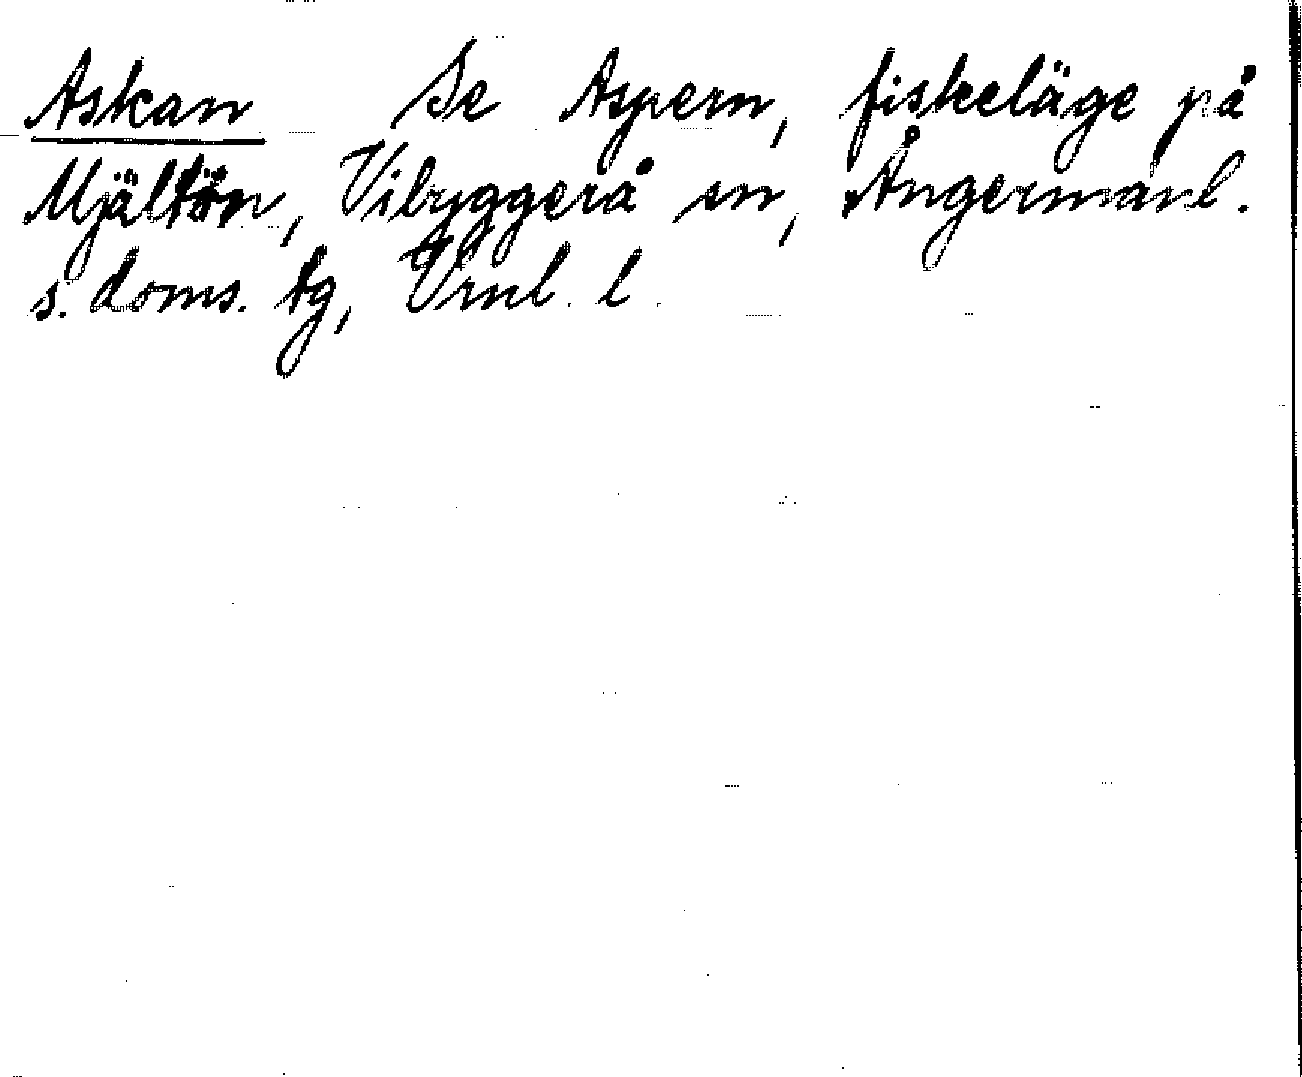 Askan Se Aspern, fiskeläge på
Mjältön, Vibyggerå sn, Ångermanl.
s. doms. tg, Vrnl. l.